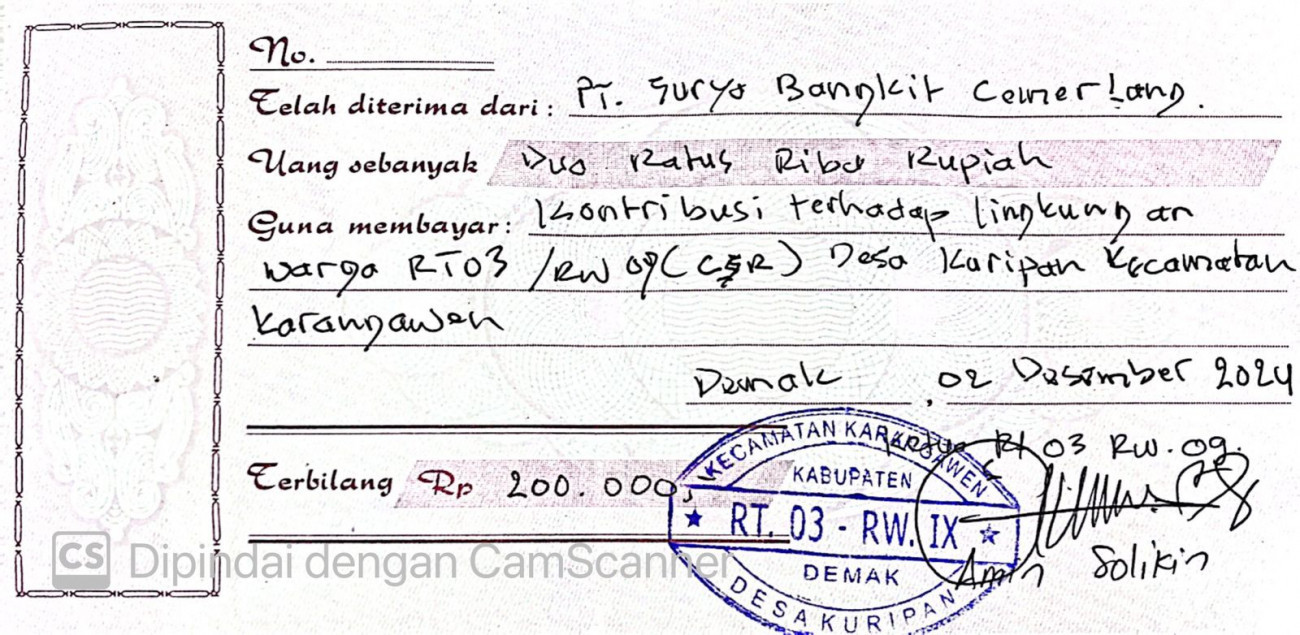 No.
Telah diterima dari : PT. Surya Bangkit Cemerlang.
Uang sebanyak Dua Ratus Ribu Rupiah
Guna membayar : Kontribusi terhadap lingkungan
warga RT03 /RW 09 (CSR) Desa Kuripan Kecamatan
Karangawen
Demak, 02 Desember 2024
RT 03 RW. 09.
Terbilang Rp 200.000,
KECAMATAN KARANGAWEN
KABUPATEN
RT. 03 - RW. IX
DEMAK
DESA KURIPAN
Amin Solikin
CS Dipindai dengan CamScanner